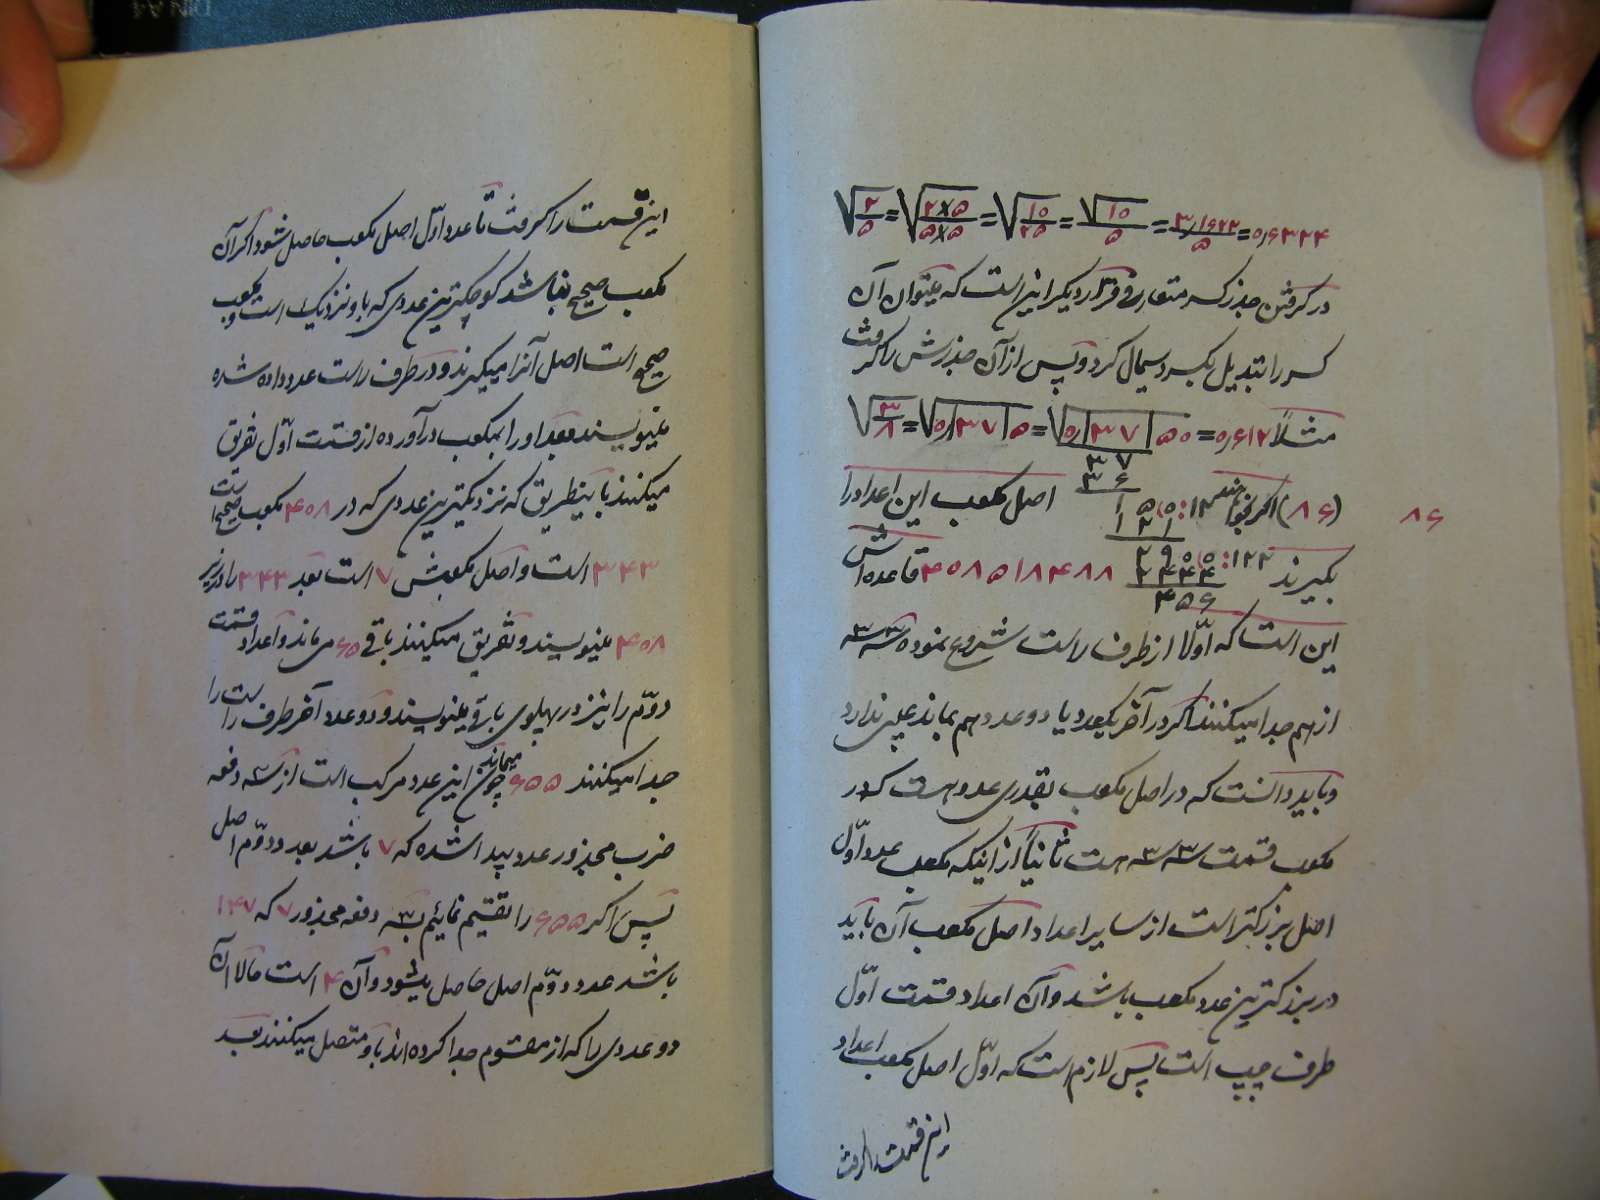 √۲/۵ = √۲×۵/۵×۵ = √۱۰/۲۵ = √۱۰/۵ = ۳٫۱۶۲۳/۵ = ۰٫۶۳۲۴
در گرفتن جذر کسر متعارفی قرار دیگر اینست که میتوان آن
کسر را تبدیل بکسر دسیمال کرد و پس از آن جذرش را گرفت
مثلاً √۳/۸ = √۰٫۳۷۵ = √۰٫۳۷۵۰ = ۰٫۶۱۲
۳۷
۳۶
۸۶
(۸۶) اگر بخواهند اصل مکعب این اعداد را
۱۵۰:۱۲
۱۲۱
بگیرند ۴۰۸۵۱۸۴۸۸ قاعده اش
۲۹۰۰:۱۲۲
۲۴۴۴
۴۵۶
این است که اوّلا از طرف راست شروع نموده سه سه
از هم جدا میکنند اگر در آخر یکعدد یا دو عدد هم بماند عیبی ندارد
و باید دانست که در اصل مکعب بقدری عدد هست که در
مکعب قسمت سه سه هست ثانیاً از اینکه مکعب عدد اوّل
اصل بزرگتر است از سایر اعداد اصل مکعب آن باید
در بزرگترین عدد مکعب باشد و آن اعداد قسمت اوّل
طرف چپ است پس لازم است که اوّل اصل مکعب اعداد
این قسمت را گرفت
این قسمت را گرفت تا عدد اوّل اصل مکعب حاصل شود اگر آن
مکعب صحیح نباشد کوچکترین عددی که باو نزدیک است و مکعب
صحیح است اصل آنرا میگیرند و در طرف راست عدد داده شده
مینویسند بعد او را بمکعب در آورده از قسمت اوّل تفریق
میکنند باینطریق که نزدیکترین عددی که در ۴۰۸ مکعب صحیح است
۳۴۳ است و اصل مکعبش ۷ است بعد ۳۴۳ را در زیر
۴۰۸ مینویسند و تفریق میکنند باقی ۶۵ می ماند و اعداد قسمت
دوّم را نیز در پهلوی باقی مینویسند و دو عدد آخر طرف راست را
جدا میکنند ۶۵۵ میماند چون این عدد مرکب است از سه دفعه
ضرب مجذور عدد پیدا شده که ۷ باشد بعدد دوّم اصل
پس اگر ۶۵۵ را تقسیم نمائیم بسه دفعه مجذور ۷ که ۱۴۷
باشد عدد دوّم اصل حاصل میشود و آن ۴ است حالا آن
دو عددی را که از مقسوم جدا کرده اند باو متصل میکنند بعد